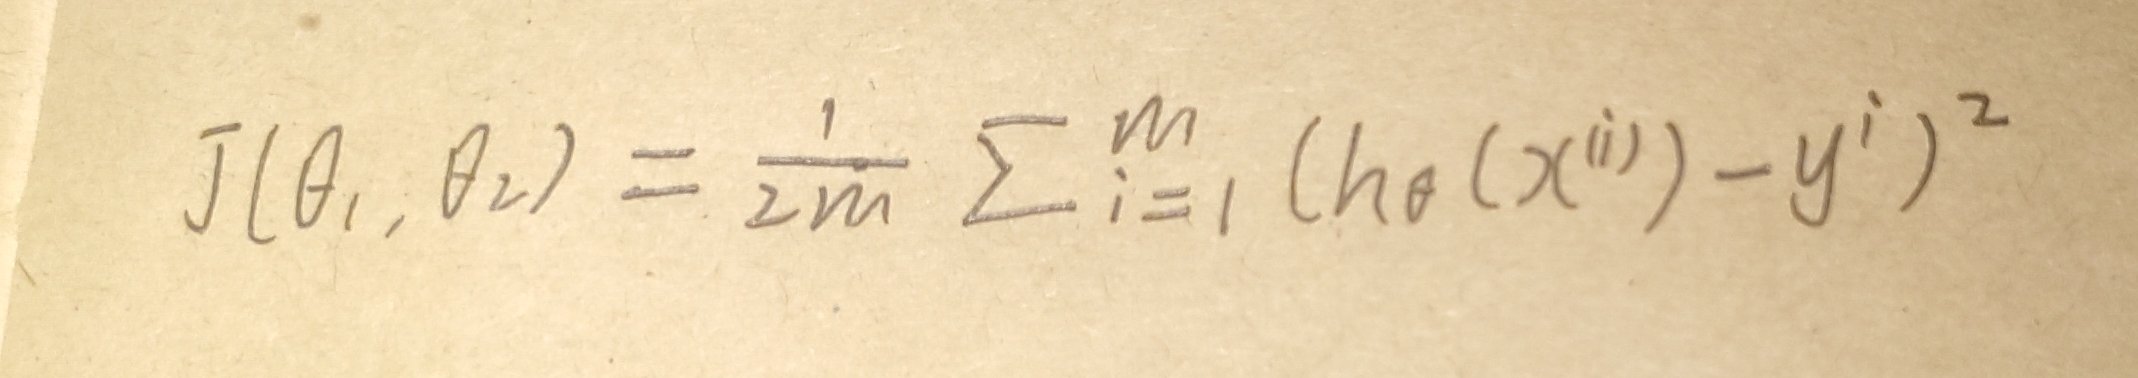 J(θ₁, θ₂) = 1/2m ∑ᵐᵢ₌₁ (hθ(x⁽ⁱ⁾) - yⁱ)²